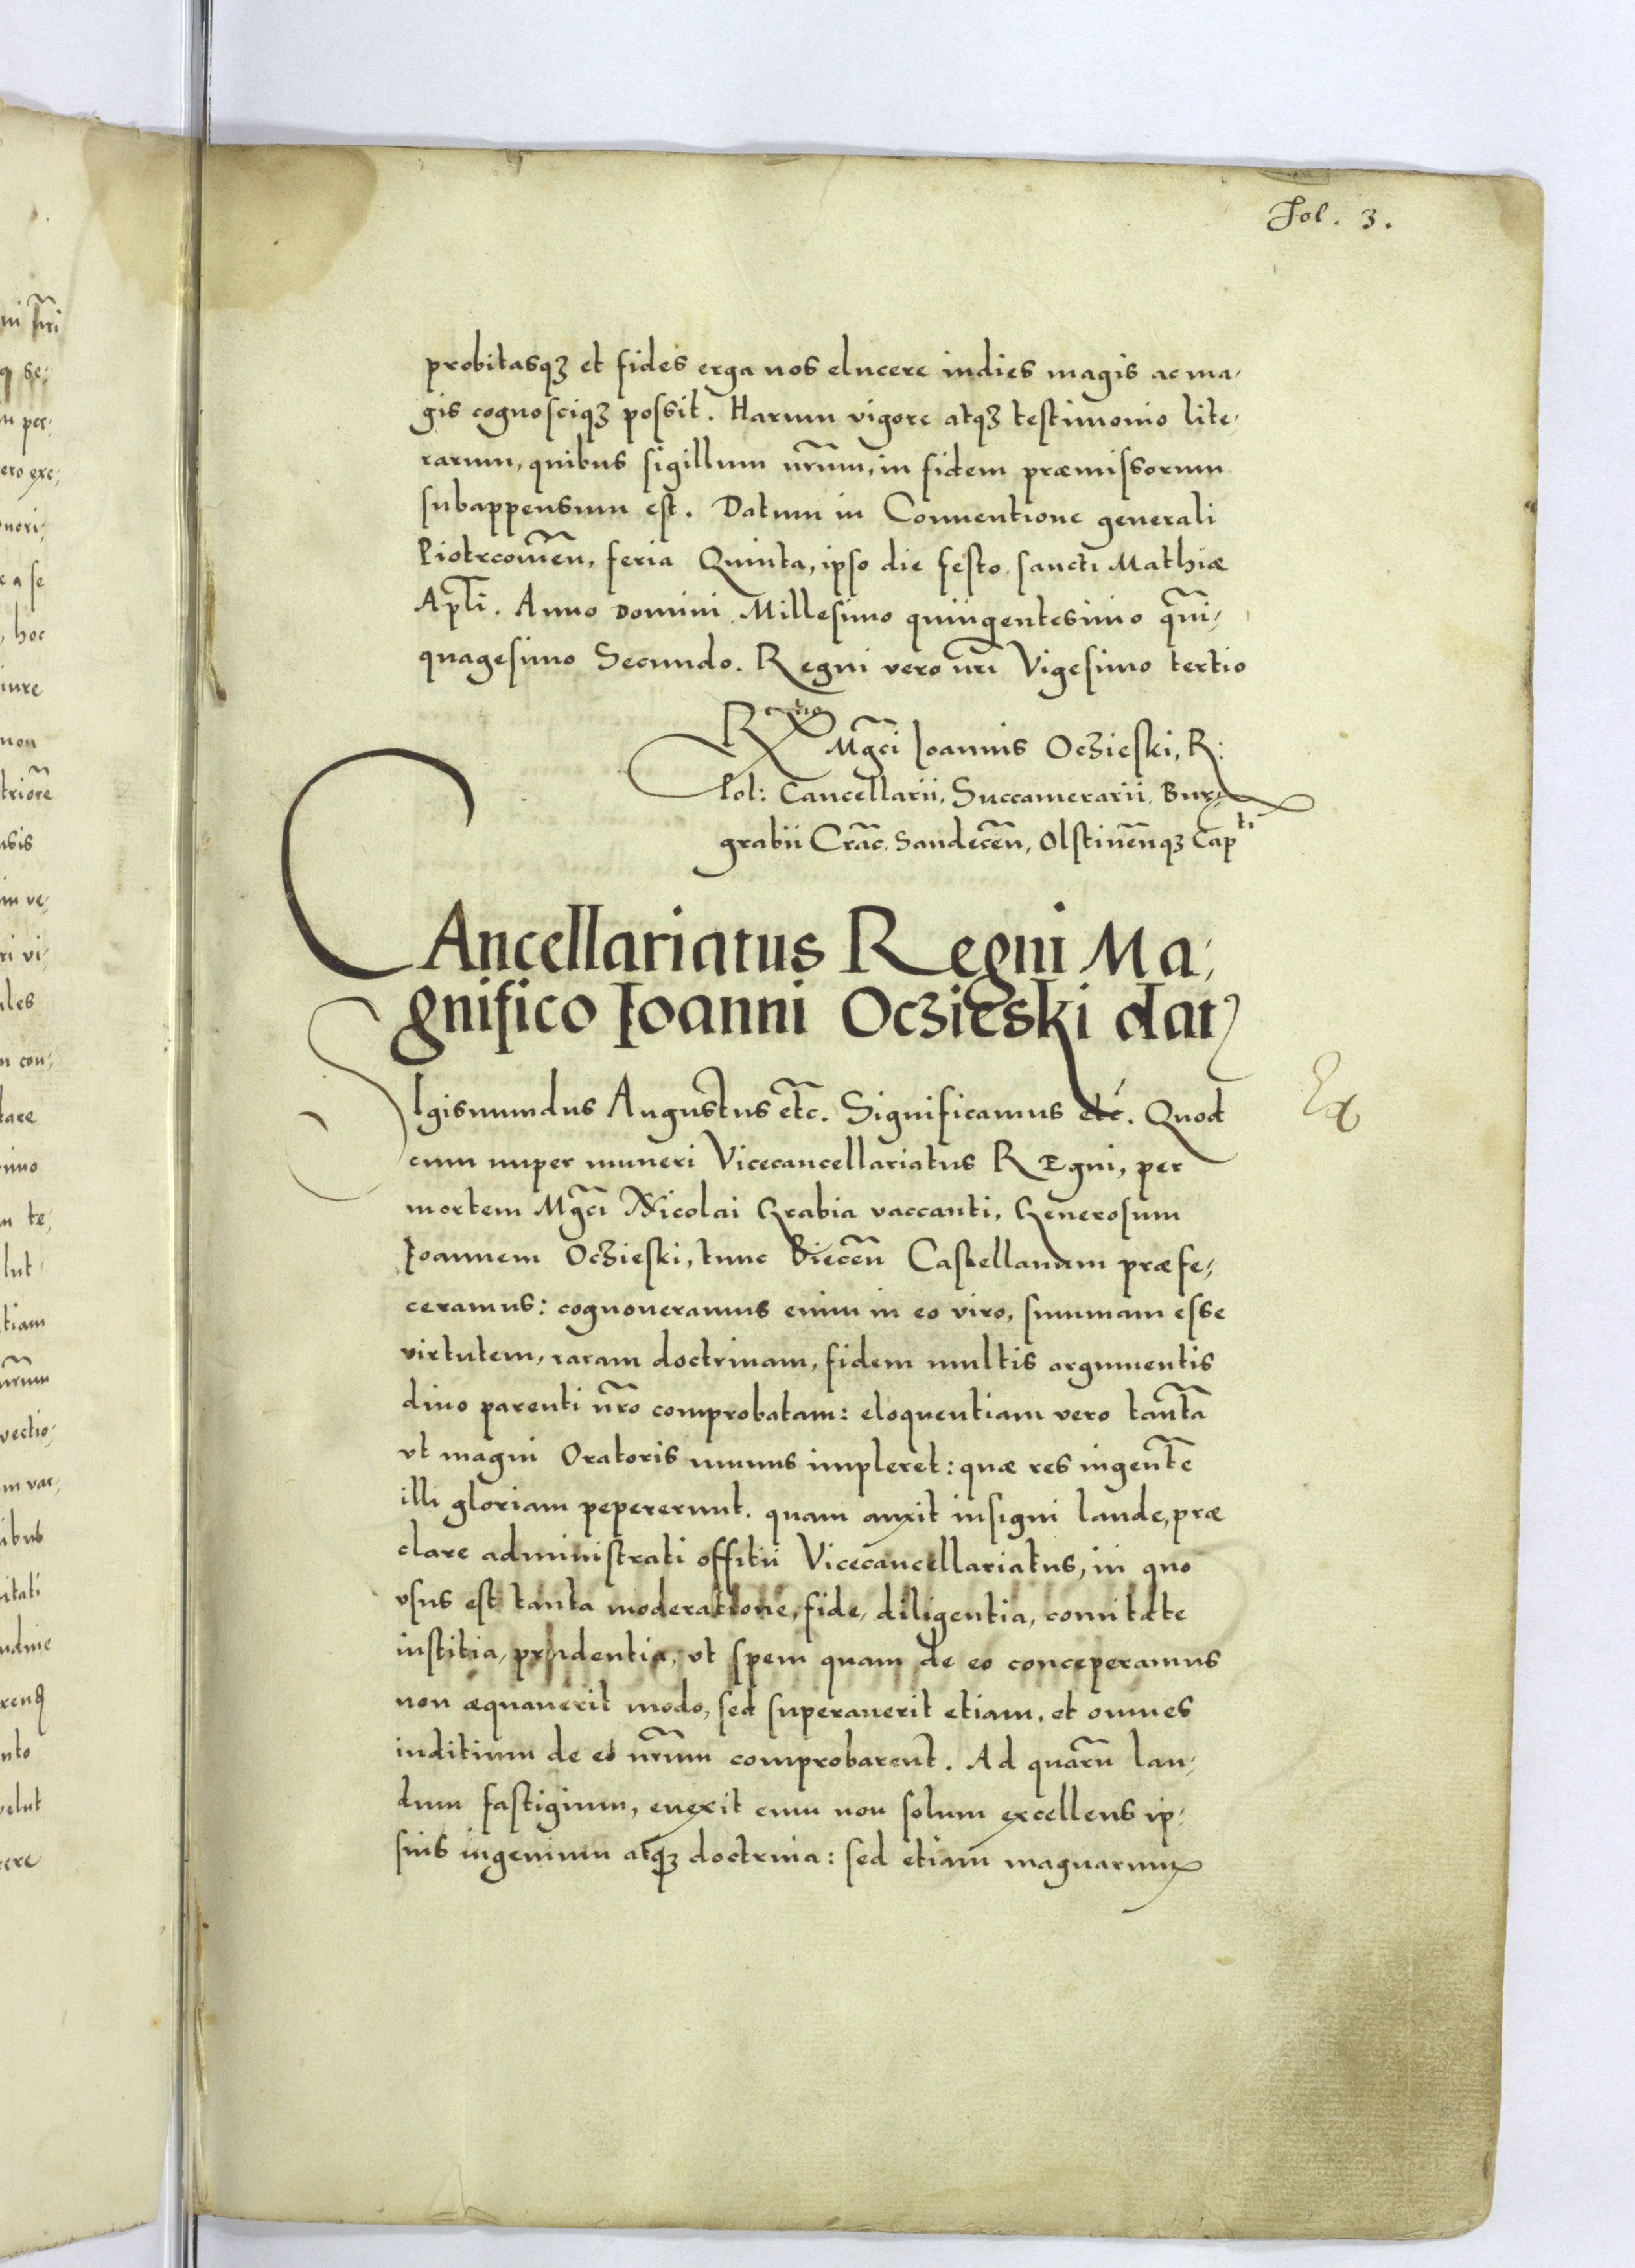 Fol. 3.
probitasqꝫ et fides erga nos elucere indies magis ac ma,
gis cognosciqꝫ possit. Harum vigore atqꝫ testimonio lite,
rarum, quibus sigillum nr̃um, in fidem præmissorum
subappensum est. Datum in Conuentione generali
Piotrcouieñ, feria Quinta, ipso die festo sancti Mathiæ
Apl̃i. Anno Domini Millesimo quingentesimo qũi,
quagesimo Secundo. Regni vero nr̃i Vigesimo tertio
Rtio
Mg̃ci Joannis OcziesKi, R:
Pol: Cancellarii, Succamerarii, Bur,
grabii Crac̃, Sandeceñ, Olstineñqꝫ Capti
CAncellariatus Regni Ma,
gnifico Joanni Oczieski dat
SIgismundus Augustus etc̃. Significamus etc. Quod
cum nuper muneri Vicecancellariatus REgni, per
mortem Mg̃ci Nicolai Grabia vaccanti, Generosum
Joannem Oczieski, tunc Bieceñ Castellanum præfe,
ceramus: cognoueramus enim in eo viro, summam esse
virtutem, raram doctrinam, fidem multis argumentis
diuo parenti nr̃o comprobatam: eloquentiam vero tantã
vt magni Oratoris munus impleret: quæ res ingentẽ
illi gloriam pepererunt. quam auxit insigni laude, præ
clare administrati offitii Vicecancellariatus, in quo
vsus est tanta moderatione, fide, diligentia, comitate
iustitia, prudentia, vt spem quam de eo conceperamus
non æquauerit modo, sed superauerit etiam, et omnes
iuditium de eo nr̃um comprobarent. Ad quarũ lau,
dum fastigium, euexit eum non solum excellens ip,
sius ingenium atqꝫ doctrina: sed etiam magnarum